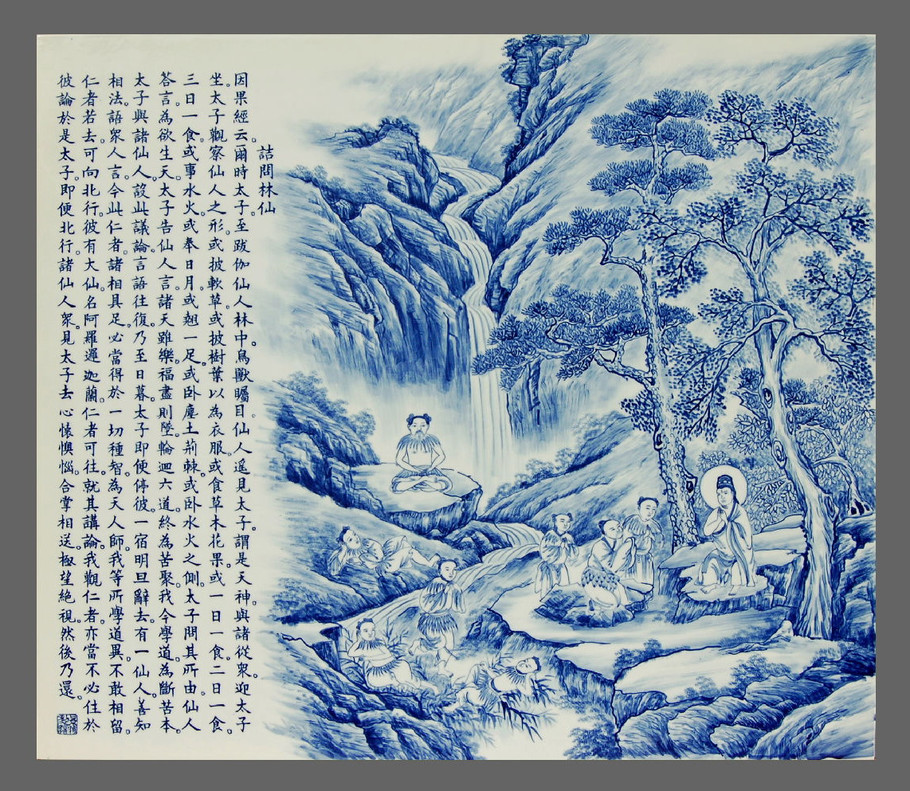 詰問林仙
因果經云。爾時太子至跋伽仙人林中。鳥獸矚目。仙人遙見太子。謂是天神與諸從衆。迎太子
坐。太子觀察仙人之形。或披軟草。或披樹葉以為衣服。或食草木花果。或一日一食。二日一食。
三日一食。或事水火。或奉日月。或翹一足。或卧塵土荊棘。或卧水火之側。太子問其所由。仙人
答言。為欲生天。太子告仙人言。諸天雖樂。福盡則墜。輪迴六道。終為苦聚。我今學道。為斷苦本。
太子與諸仙人設此議論。言語往復。乃至日暮。太子即便停彼一宿。明旦辭去。有一仙人。善知
相法。語衆人言。今此仁者。諸相具足。必當得於一切種智。為天人師。我等所學道異。不敢相留。
仁者若去。可向北行。彼有大仙。名阿羅邏迦蘭。仁者可往就其講論。我觀仁者。亦當不必住於
彼論。於是太子即便北行。諸仙人衆。見太子去。心懷懊惱。合掌相送。極望絕視。然後乃還。